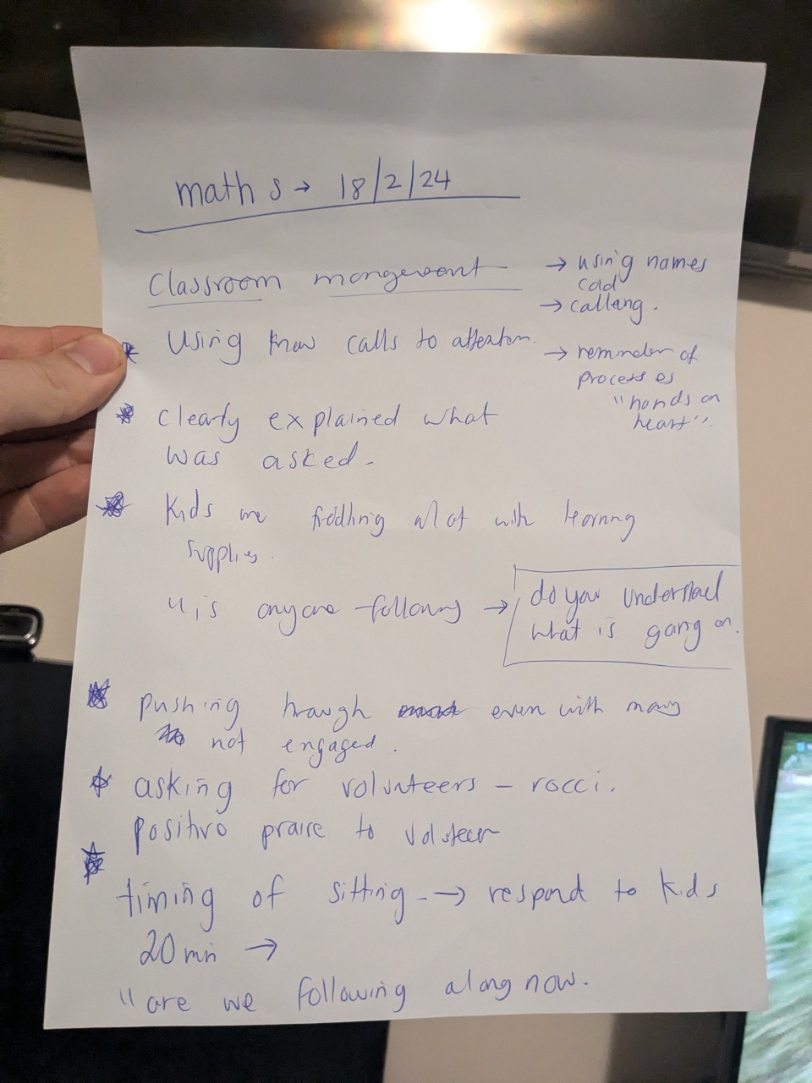 maths → 18/2/24
Classroom mangement → using names
cold
→ calling.
* Using know calls to attention. → reminder of
processes
"hands on
heart".
* clearly explained what
was asked.
* Kids are fiddling alot with learning
supplies.
"is anyone following → do you understand
what is going on.
* pushing through even with many
not engaged.
* asking for volunteers - rocci.
positive praise to volunteer
* timing of sitting → respond to kids
20 min →
"are we following along now.